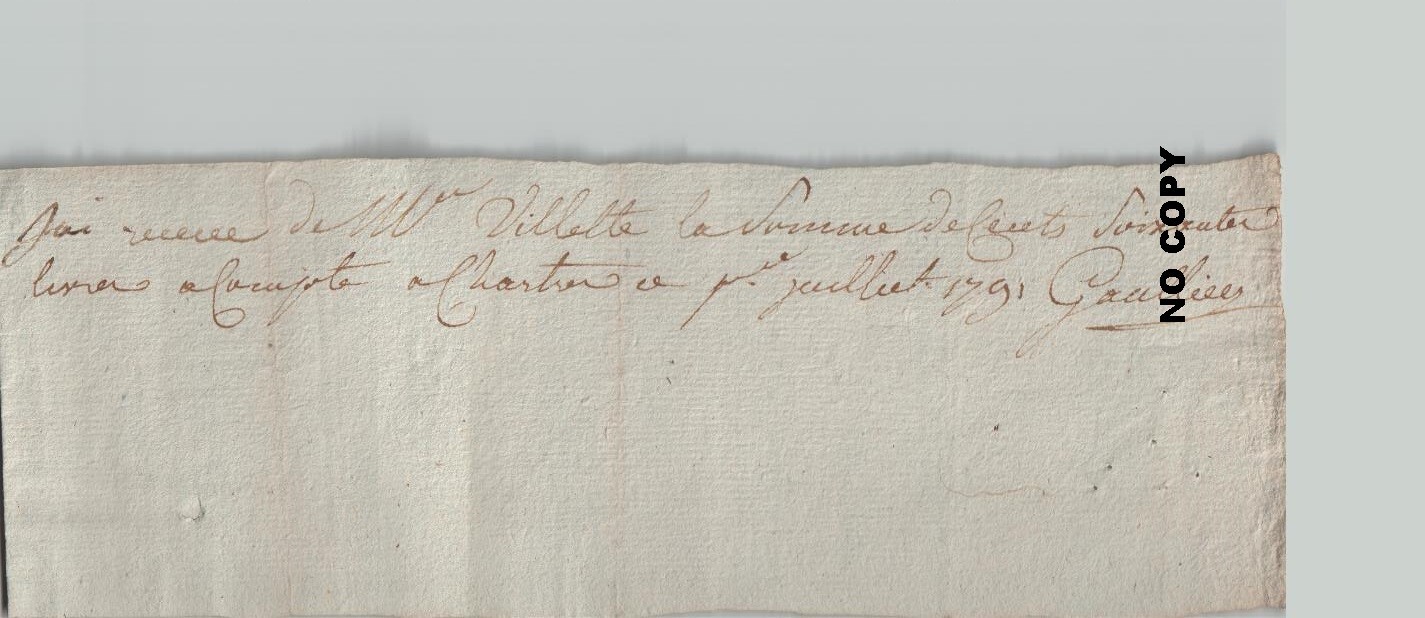 Jai recue de Mr Villette la Somme de Cents Soixantes
livres a Compte a Chartres ce pre juilliet 1791
NO COPY